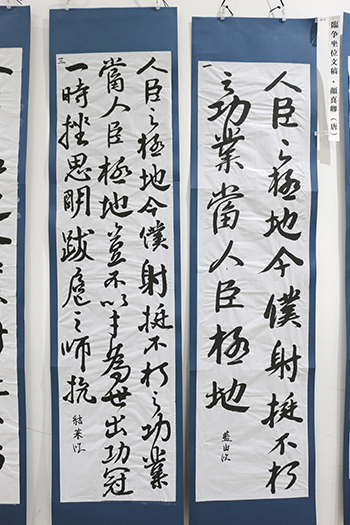 臨争坐位文稿・顔真卿(唐)
一
人臣之極地今僕射挺不朽
之功業當人臣極地
三
人臣之極地今僕射挺不朽之功業
當人臣極地豈不以才為世出功冠
一時挫思明跋扈之師抗
結菜臨